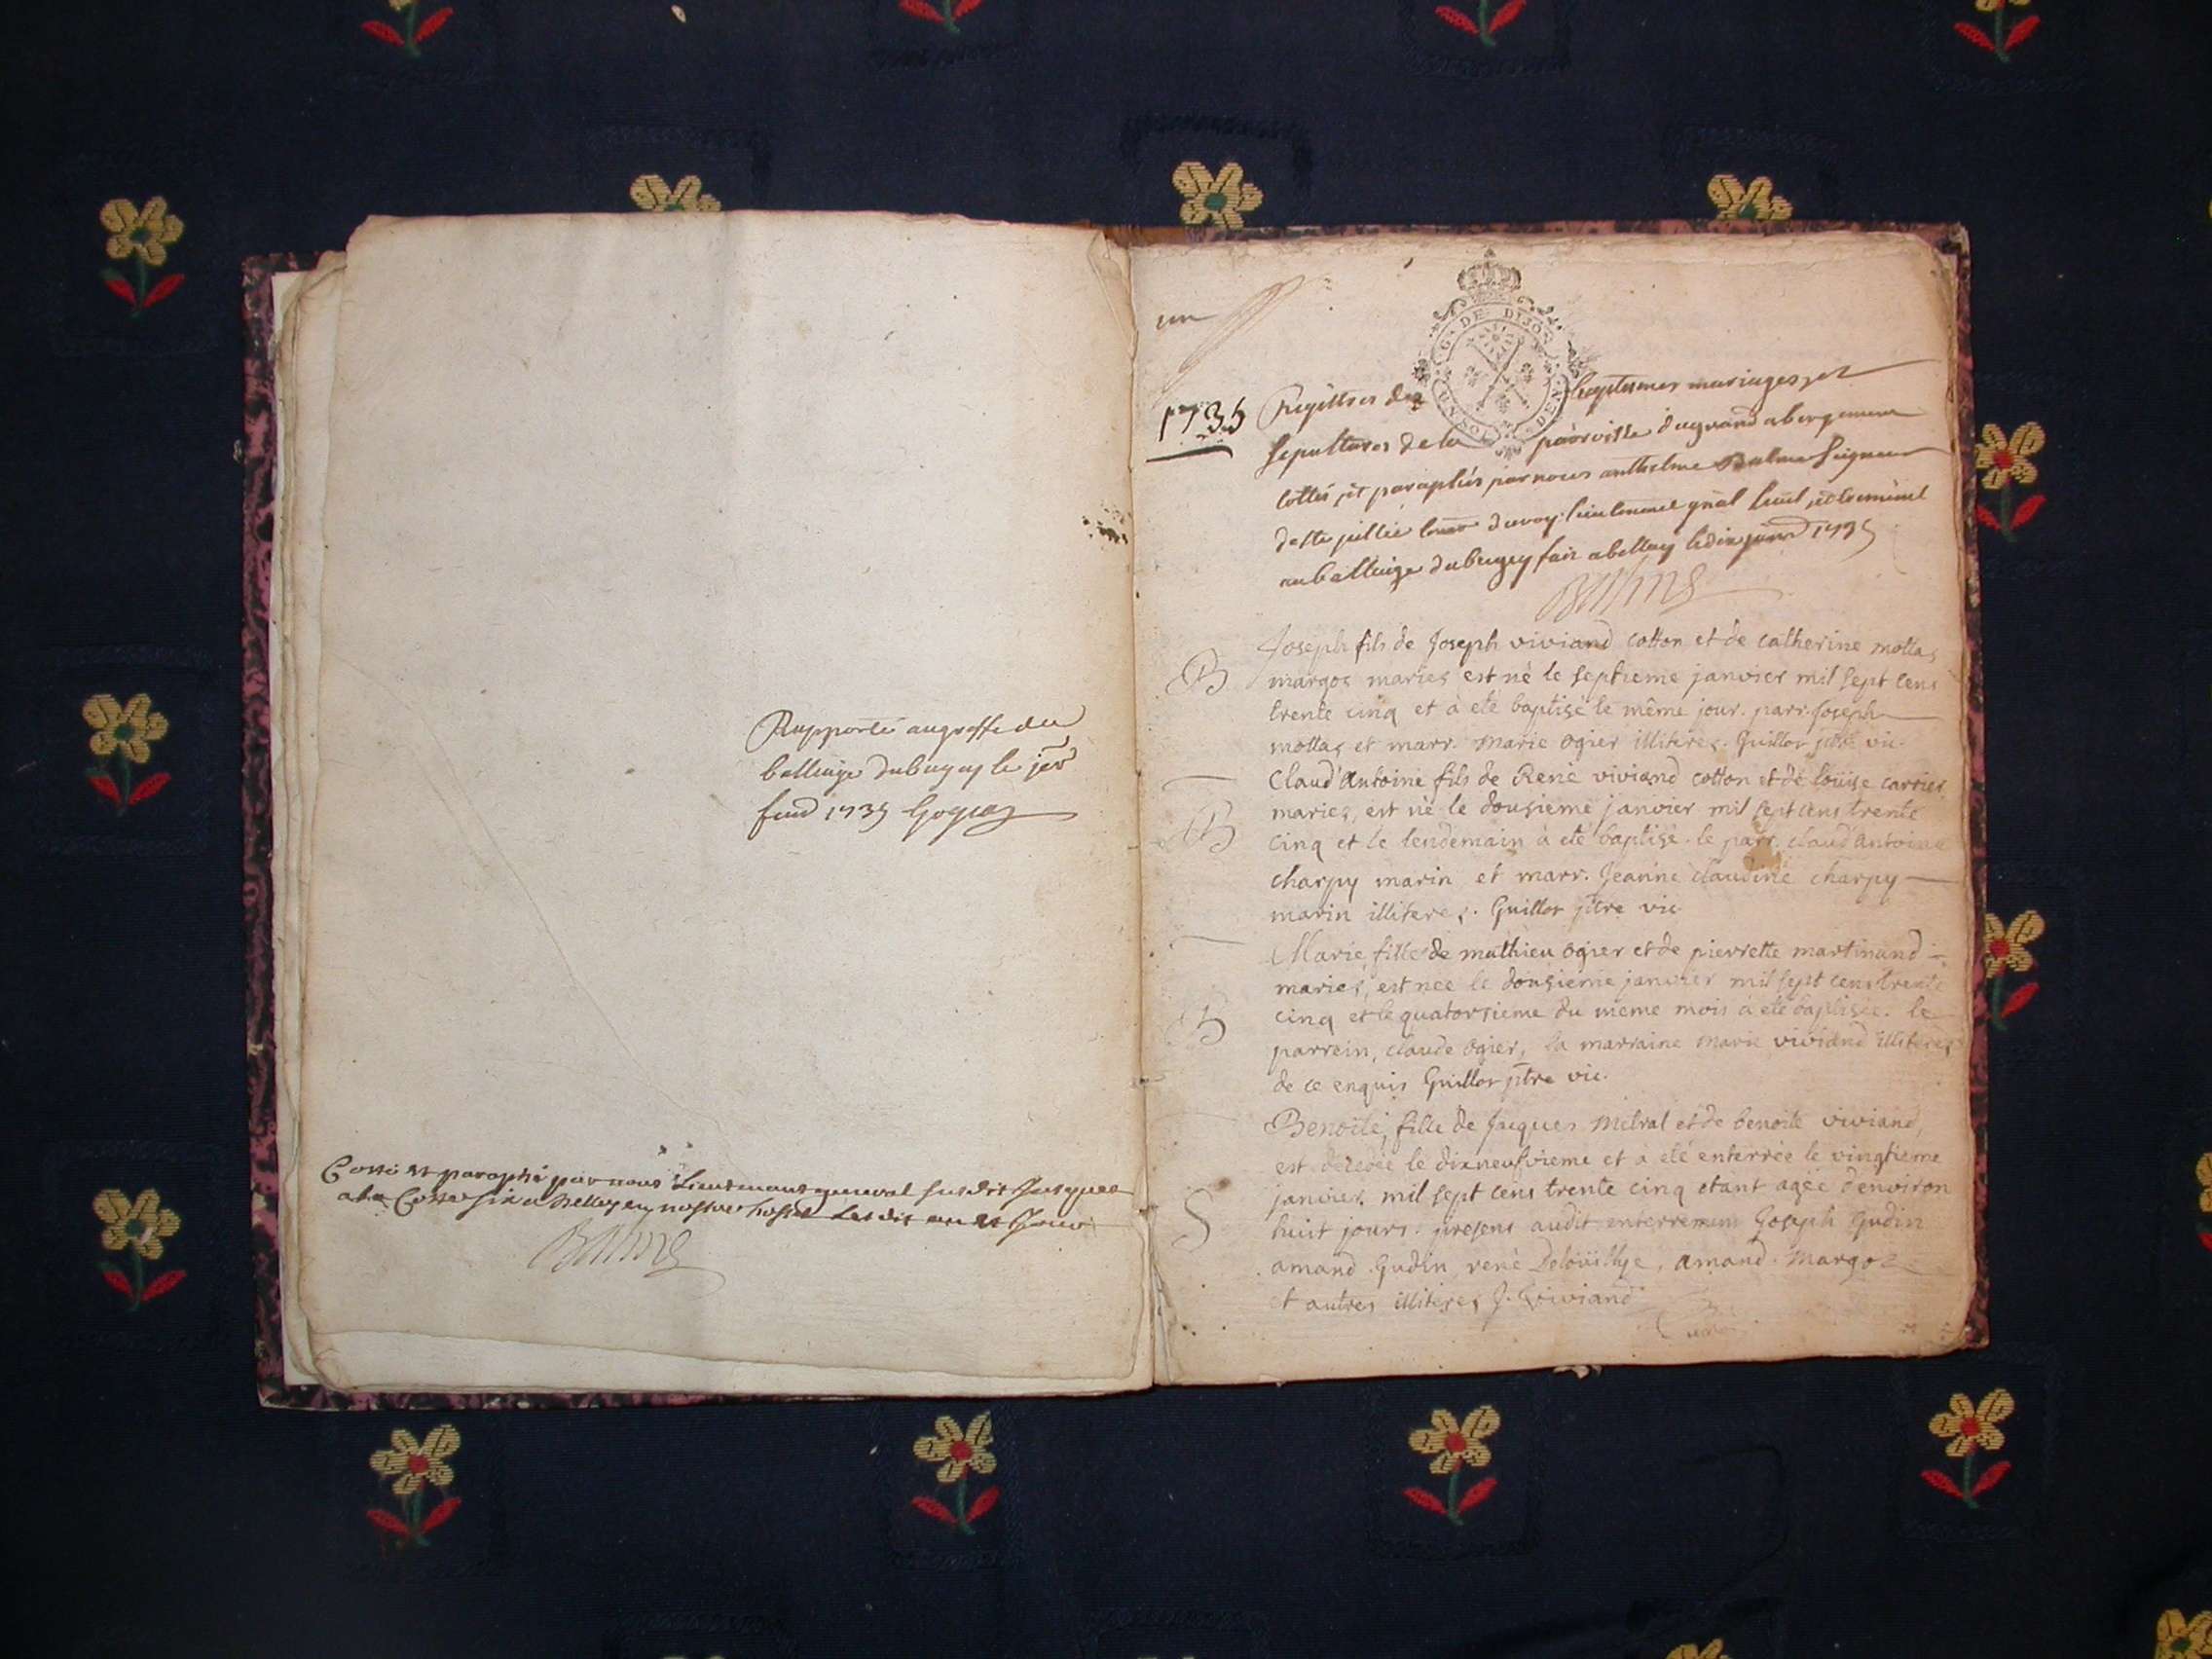 Rapporté au greffe du
balliage du bugey le
1735
Cotté et paraphé par nous Lieutenant general susdit Jusques
a la Cotte six a Belley en nostre hostel Les dit an et Jour
Balme
un
G. DE DIJON
1735
Registres des baptesmes mariages, et
sepultures de la parroisse du grand abergement
cottés, et paraphés par nous anthelme Balme seigneur
du roy lieutenant gñal civil, et criminel
au balliage du bugey fait a belley le dix 1735
Balme
B
Joseph fils de Joseph viviand cotton et de catherine mottas
margos mariés est né le septieme janvier mil sept cens
trente cinq et à eté baptisé le même jour. parr. Joseph
mottas et marr. Marie ogier illiteres. Guillot ptre vic.
B
Claud'Antoine fils de René viviand cotton et de loüise carrier
mariés, est né le dousieme janvier mil sept cens trente
cinq et le lendemain à eté baptisé. le parr. claud'antoine
charpy marin et marr. Jeanne claudine charpy
marin illiteres. Guillot ptre vic
B
Marie, fille de mathieu ogier et de pierrette martinand
mariés, est nee le dousieme janvier mil sept cens trente
cinq et le quatorsieme du meme mois à eté baptisée. le
parrein, claude ogier, la marraine marie viviand illiteres
de ce enquis Guillot ptre vic.
S
Benoite, fille de Jacques Mitral et de benoite viviand,
est decedée le dixneufvieme et à eté enterrée le vingtieme
janvier mil sept cens trente cinq etant agée d'environ
huit jours. presens audit enterrement Joseph Gudin
amand Gudin, rené, amand Margoz
et autres illiteres J. Viviand